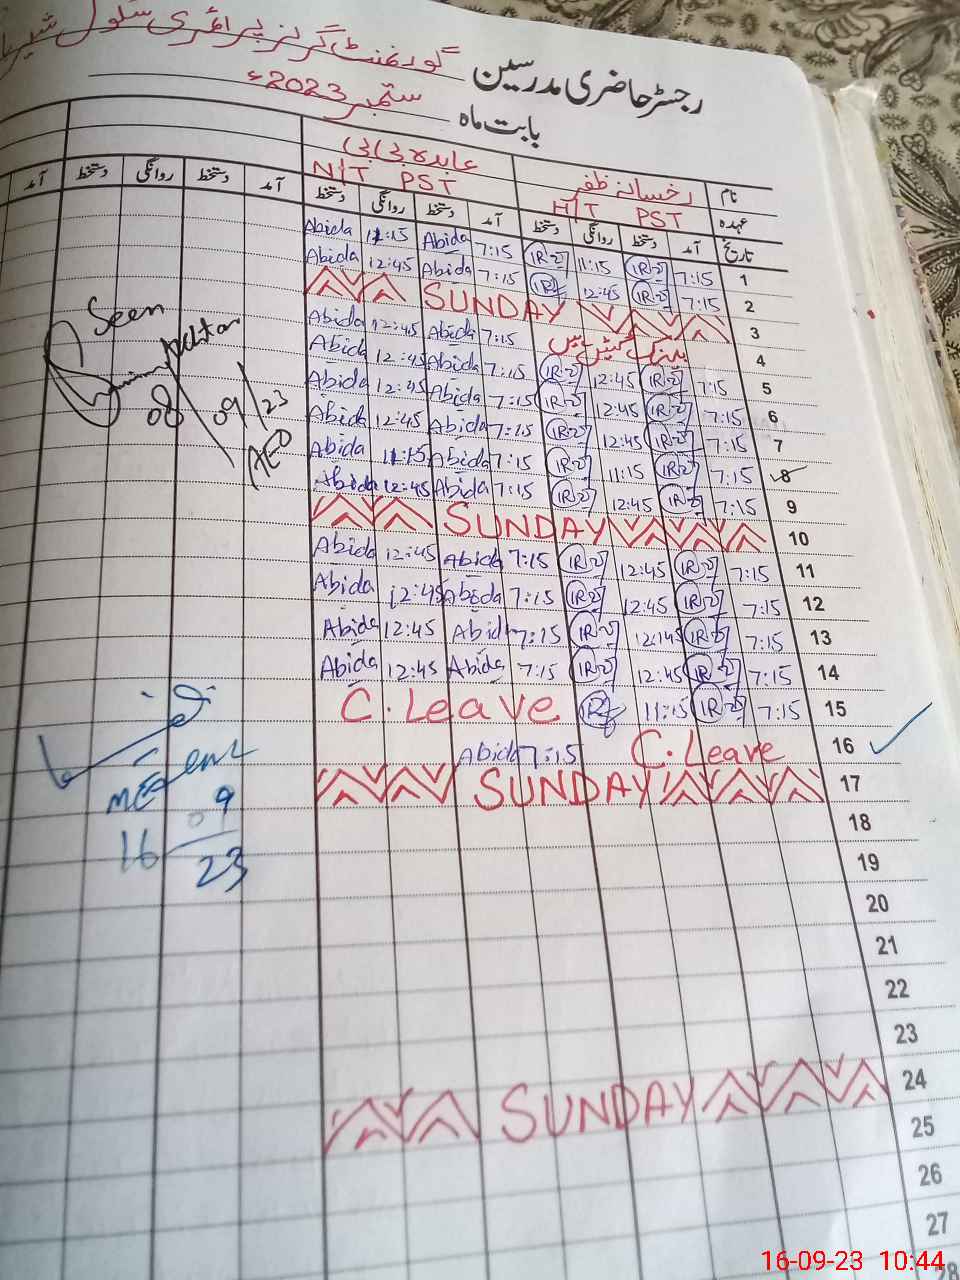 رجسٹر حاضری مدرسین گورنمنٹ گرلز پرائمری سکول
بابت ماہ ستمبر 2023ء
نام رخسانہ ظفر عابدہ بی بی
عہدہ H/T PST N/T PST
تاریخ آمد دستخط روانگی دستخط آمد دستخط روانگی دستخط آمد دستخط روانگی دستخط آمد
1 7:15 11:15 7:15 Abida 11:15 Abida
2 7:15 12:45 7:15 Abida 12:45 Abida
3 SUNDAY
4 7:15 Abida 12:45 Abida
5 7:15 12:45 7:15 Abida 12:45 Abida
6 7:15 12:45 7:15 Abida 12:45 Abida
7 7:15 12:45 7:15 Abida 12:45 Abida
8 7:15 11:15 7:15 Abida 11:15 Abida
9 7:15 12:45 7:15 Abida 12:45 Abida
10 SUNDAY
11 7:15 12:45 7:15 Abida 12:45 Abida
12 7:15 12:45 7:15 Abida 12:45 Abida
13 7:15 12:45 7:15 Abida 12:45 Abida
14 7:15 12:45 7:15 Abida 12:45 Abida
15 7:15 11:15 C.Leave
16 C.Leave 7:15 Abida
17 SUNDAY
18
19
20
21
22
23
24 SUNDAY
25
26
27
28
Seen
08/09/23
AEO
16/09/23
16-09-23 10:44